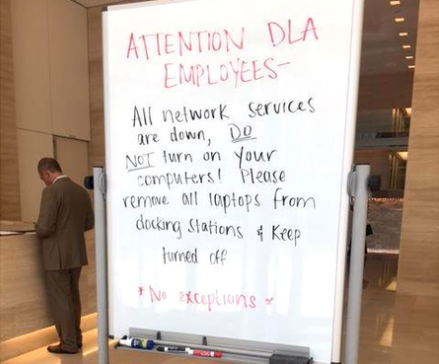 ATTENTION DLA
EMPLOYEES-
All network services
are down, DO
NOT turn on your
computers! Please
remove all laptops from
docking stations & keep
turned off
* No exceptions *